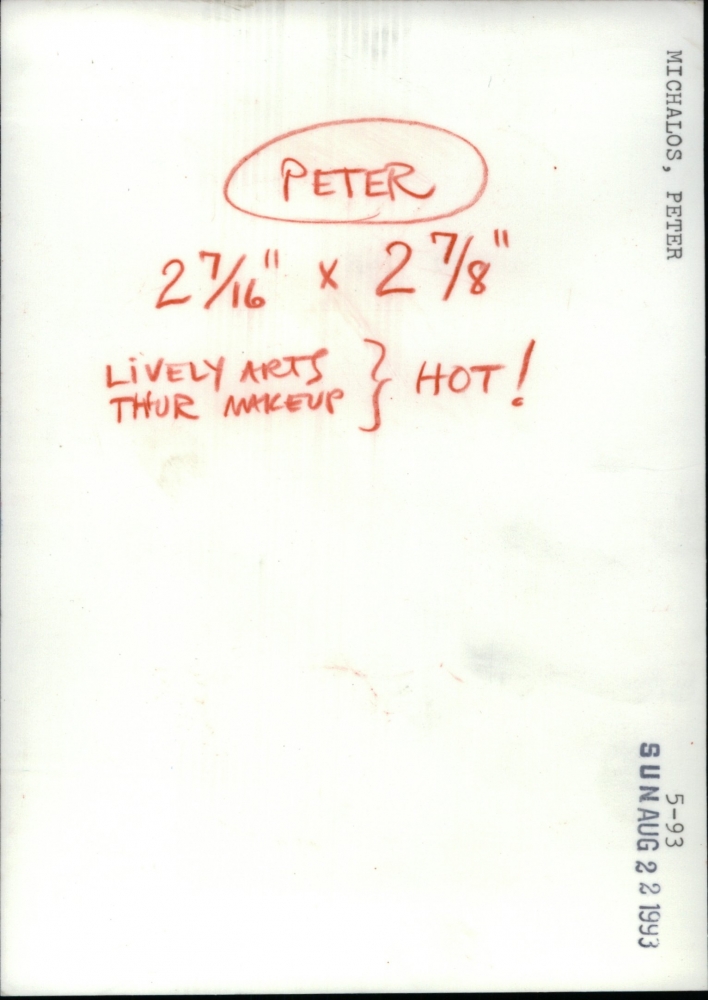 PETER
2 7/16" x 2 7/8"
LIVELY ARTS
THUR MAKEUP } HOT!
MICHALOS, PETER
5-93
SUN AUG 22 1993